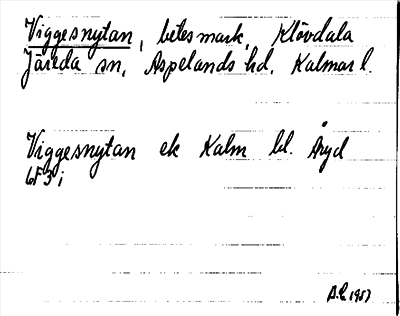 Viggesnytan, betesmark, Klövdala
Järeda sn, Aspelands hd. Kalmar l.
Viggesnytan ek Kalm bl. Åryd
6F3i
B.L. 1957